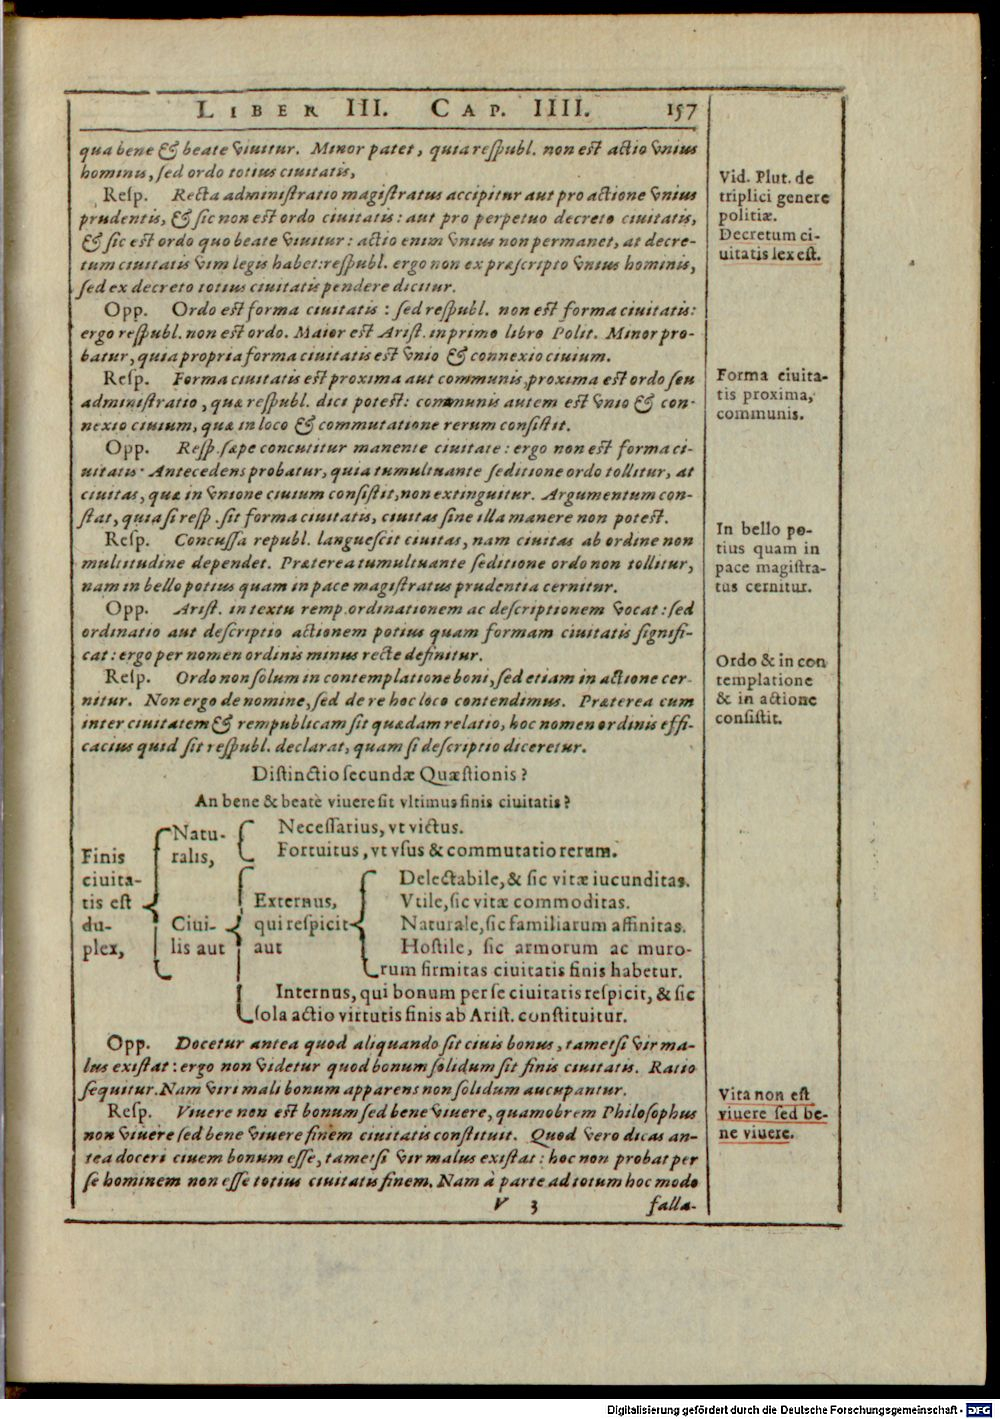 LIBER III. CAP. IIII. 157
qua bene & beate viuitur. Minor patet, quia respubl. non est actio vnius
hominis, sed ordo totius ciuitatis,
Resp. Recta administratio magistratus accipitur aut pro actione vnius
prudentis, & sic non est ordo ciuitatis: aut pro perpetuo decreto ciuitatis,
& sic est ordo quo beate viuitur: actio enim vnius non permanet, at decre-
tum ciuitatis vim legis habet: respubl. ergo non ex præscripto vnius hominis,
sed ex decreto totius ciuitatis pendere dicitur.
Opp. Ordo est forma ciuitatis: sed respubl. non est forma ciuitatis:
ergo respubl. non est ordo. Maior est Arist. in primo libro Polit. Minor pro-
batur, quia propria forma ciuitatis est vnio & connexio ciuium.
Resp. Forma ciuitatis est proxima aut communis, proxima est ordo seu
administratio, quæ respubl. dici potest: communis autem est vnio & con-
nexio ciuium, quæ in loco & commutatione rerum consistit.
Opp. Resp. sæpe concutitur manente ciuitate: ergo non est forma ci-
uitatis. Antecedens probatur, quia tumultuante seditione ordo tollitur, at
ciuitas, quæ in vnione ciuium consistit, non extinguitur. Argumentum con-
stat, quia si resp. sit forma ciuitatis, ciuitas sine illa manere non potest.
Resp. Concussa republ. languescit ciuitas, nam ciuitas ab ordine non
multitudine dependet. Præterea tumultuante seditione ordo non tollitur,
nam in bello potius quam in pace magistratus prudentia cernitur.
Opp. Arist. in textu remp. ordinationem ac descriptionem vocat: sed
ordinatio aut descriptio actionem potius quam formam ciuitatis signifi-
cat: ergo per nomen ordinis minus recte definitur.
Resp. Ordo non solum in contemplatione boni, sed etiam in actione cer-
nitur. Non ergo de nomine, sed de re hoc loco contendimus. Præterea cum
inter ciuitatem & rempublicam sit quædam relatio, hoc nomen ordinis effi-
cacius quid sit respubl. declarat, quam si descriptio diceretur.
Distinctio secundæ Quæstionis?
An bene & beate viuere sit vltimus finis ciuitatis?
Finis
ciuita-
tis est
du-
plex,
Natu-
ralis,
Necessarius, vt victus.
Fortuitus, vt vsus & commutatio rerum.
Ciui-
lis aut
Externus,
qui respicit
aut
Delectabile, & sic vitæ iucunditas.
Vtile, sic vitæ commoditas.
Naturale, sic familiarum affinitas.
Hostile, sic armorum ac muro-
rum firmitas ciuitatis finis habetur.
Internus, qui bonum per se ciuitatis respicit, & sic
sola actio virtutis finis ab Arist. constituitur.
Opp. Docetur antea quod aliquando sit ciuis bonus, tametsi vir ma-
lus existat: ergo non videtur quod bonum solidum sit finis ciuitatis. Ratio
sequitur. Nam viri mali bonum apparens non solidum aucupantur.
Resp. Viuere non est bonum sed bene viuere, quamobrem Philosophus
non viuere sed bene viuere finem ciuitatis constituit. Quod vero dicas an-
tea doceri ciuem bonum esse, tametsi vir malus existat: hoc non probat per
se hominem non esse totius ciuitatis finem. Nam à parte ad totum hoc modo
V 3 falla-
Vid. Plut. de
triplici genere
politiæ.
Decretum ci-
uitatis lex est.
Forma ciuita-
tis proxima,
communis.
In bello po-
tius quam in
pace magistra-
tus cernitur.
Ordo & in con
templatione
& in actione
consistit.
Vita non est
viuere sed be-
ne viuere.
Digitalisierung gefördert durch die Deutsche Forschungsgemeinschaft - DFG